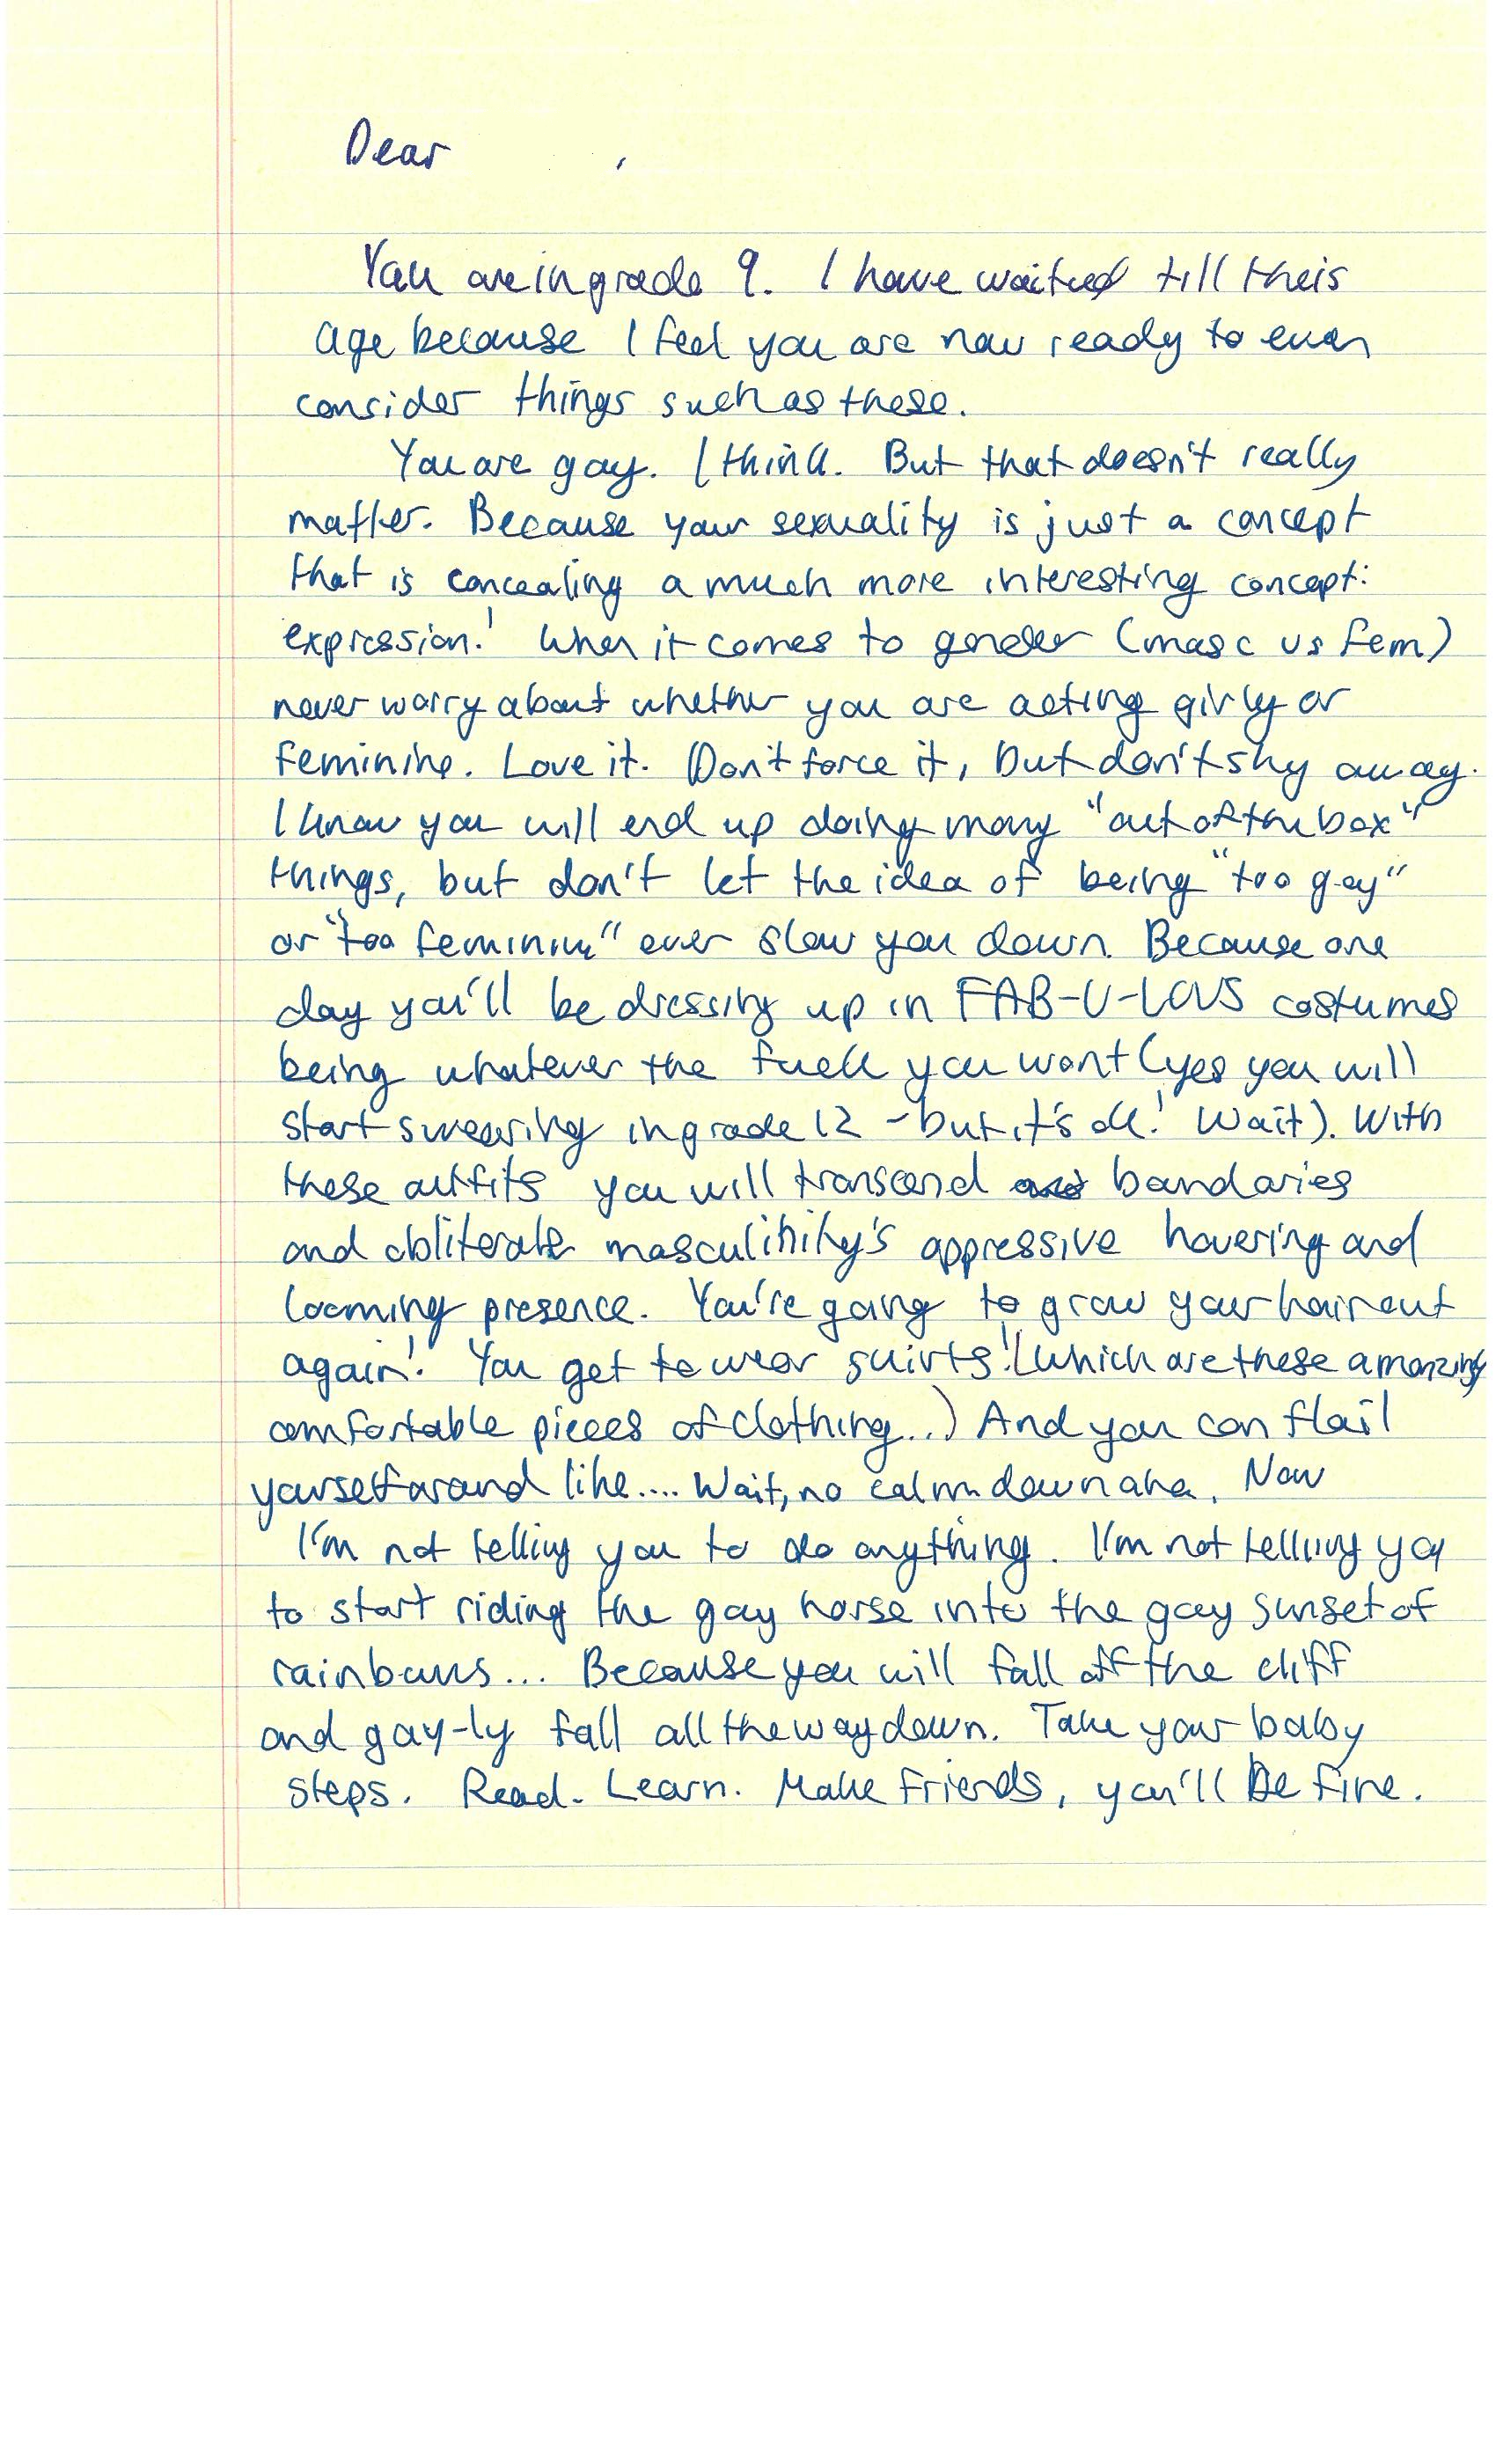 Dear ,
You are in grade 9. I have waited till theis
age because I feel you are now ready to even
consider things such as these.
You are gay. I think. But that doesn't really
matter. Because your sexuality is just a concept
that is concealing a much more interesting concept:
expression! When it comes to gender (masc vs fem)
never worry about whether you are acting girly or
feminine. Love it. Don't force it, but don't shy away.
I know you will end up doing many "out of the box"
things, but don't let the idea of being "too gay"
or "too feminine" ever slow you down. Because one
day you'll be dressing up in FAB-U-LOUS costumes
being whatever the fuck you want (yes you will
start swearing in grade 12 - but it's ok! Wait). With
these outfits you will transcend boundaries
and obliterate masculinity's oppressive hovering and
looming presence. You're going to grow your hair out
again! You get to wear skirts! (which are these amazing
comfortable pieces of clothing...) And you can flail
yourself around like.... Wait, no calm down aha. Now
I'm not telling you to do anything. I'm not telling you
to start riding the gay horse into the gay sunset of
rainbows... Because you will fall off the cliff
and gay-ly fall all the way down. Take your baby
steps. Read. Learn. Make friends, you'll be fine.